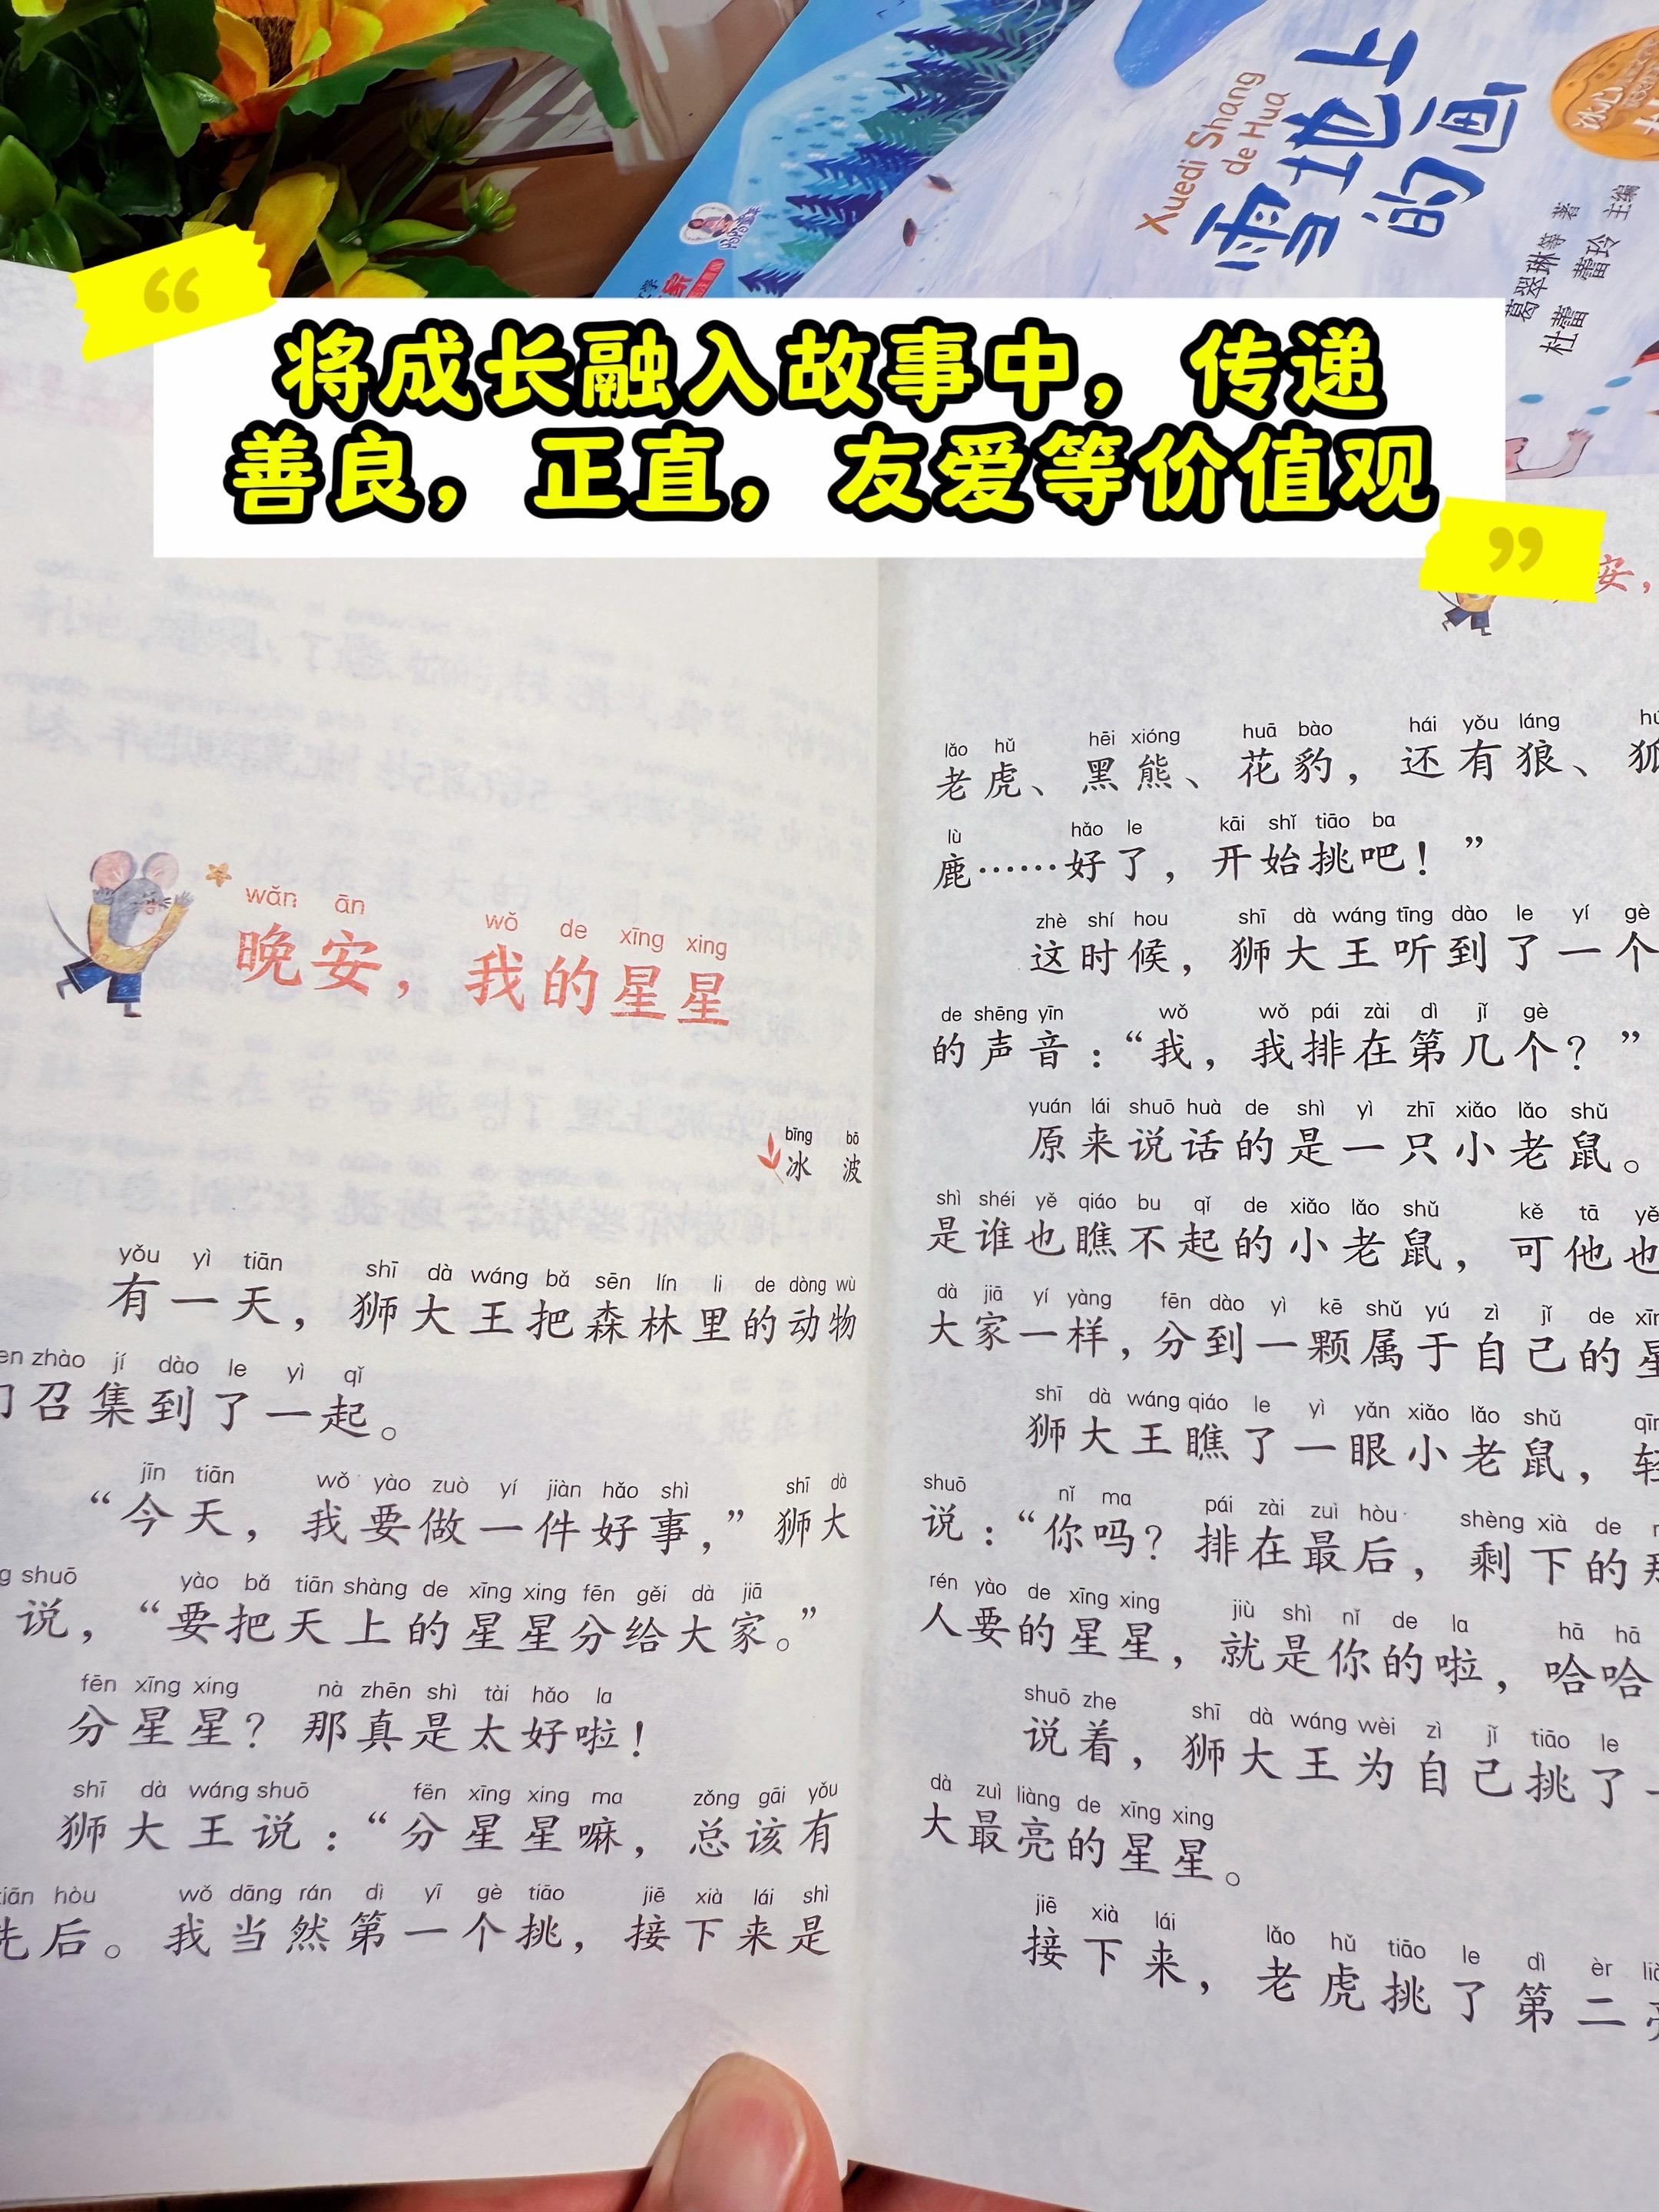 Xuedi Shang
de Hua
雪地上
的画
葛翠琳等 著
杜蕾 蕾玲 主编
冰心
“
将成长融入故事中，传递
善良，正直，友爱等价值观
”
wǎn ān wǒ de xīng xing
晚安，我的星星
bīng bō
冰 波
yǒu yì tiān shī dà wáng bǎ sēn lín li de dòng wù
有一天，狮大王把森林里的动物
zhào jí dào le yì qǐ
召集到了一起。
jīn tiān wǒ yào zuò yí jiàn hǎo shì shī dà
“今天，我要做一件好事，”狮大
shuō yào bǎ tiān shàng de xīng xing fēn gěi dà jiā
说，“要把天上的星星分给大家。”
fēn xīng xing nà zhēn shì tài hǎo la
分星星？那真是太好啦！
shī dà wáng shuō fēn xīng xing ma zǒng gāi yǒu
狮大王说：“分星星嘛，总该有
hòu wǒ dāng rán dì yī gè tiāo jiē xià lái shì
先后。我当然第一个挑，接下来是
安，
lǎo hǔ hēi xióng huā bào hái yǒu láng
老虎、黑熊、花豹，还有狼、狐
lù hǎo le kāi shǐ tiāo ba
鹿……好了，开始挑吧！”
zhè shí hou shī dà wáng tīng dào le yí gè
这时候，狮大王听到了一个
de shēng yīn wǒ wǒ pái zài dì jǐ gè
的声音：“我，我排在第几个？”
yuán lái shuō huà de shì yì zhī xiǎo lǎo shǔ
原来说话的是一只小老鼠。
shì shéi yě qiáo bu qǐ de xiǎo lǎo shǔ kě tā yě
是谁也瞧不起的小老鼠，可他也
dà jiā yí yàng fēn dào yì kē shǔ yú zì jǐ de
大家一样，分到一颗属于自己的星
shī dà wáng qiáo le yì yǎn xiǎo lǎo shǔ
狮大王瞧了一眼小老鼠，轻
shuō nǐ ma pái zài zuì hòu shèng xià de
说：“你吗？排在最后，剩下的
rén yào de xīng xing jiù shì nǐ de la hā hā
人要的星星，就是你的啦，哈哈
shuō zhe shī dà wáng wèi zì jǐ tiāo le
说着，狮大王为自己挑了一
dà zuì liàng de xīng xing
大最亮的星星。
jiē xià lái lǎo hǔ tiāo le dì èr
接下来，老虎挑了第二